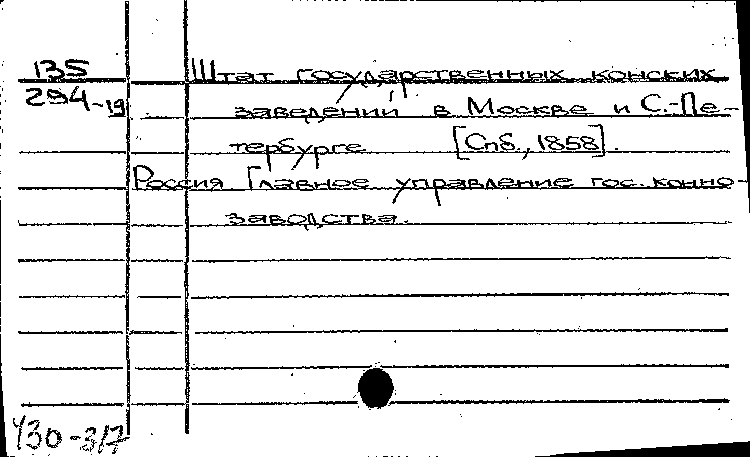 135 Штат государственных конских
294-19 заведений в Москве и С.-Пе-
тербурге [Спб., 1858].
Россия Главное управление гос. конно-
заводства.
У30-3/7